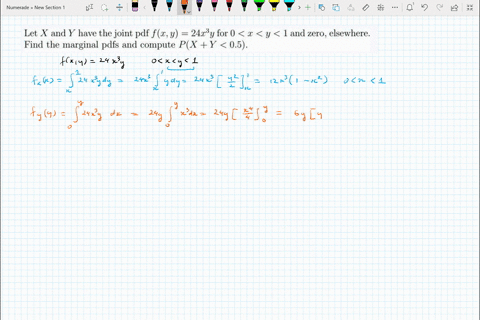 Numerade » New Section 1
Let X and Y have the joint pdf f(x, y) = 24x³y for 0 < x < y < 1 and zero, elsewhere.
Find the marginal pdfs and compute P(X + Y < 0.5).
f(x,y) = 24x³y 0<x<y<1
fₓ(x) = ∫ₓ¹ 24x³y dy = 24x³ ∫ₓ¹ y dy = 24x³ [y²/2]ₓ¹ = 12x³(1-x²) 0<x<1
f_y(y) = ∫₀^y 24x³y dx = 24y ∫₀^y x³dx = 24y [x⁴/4]₀^y = 6y [y